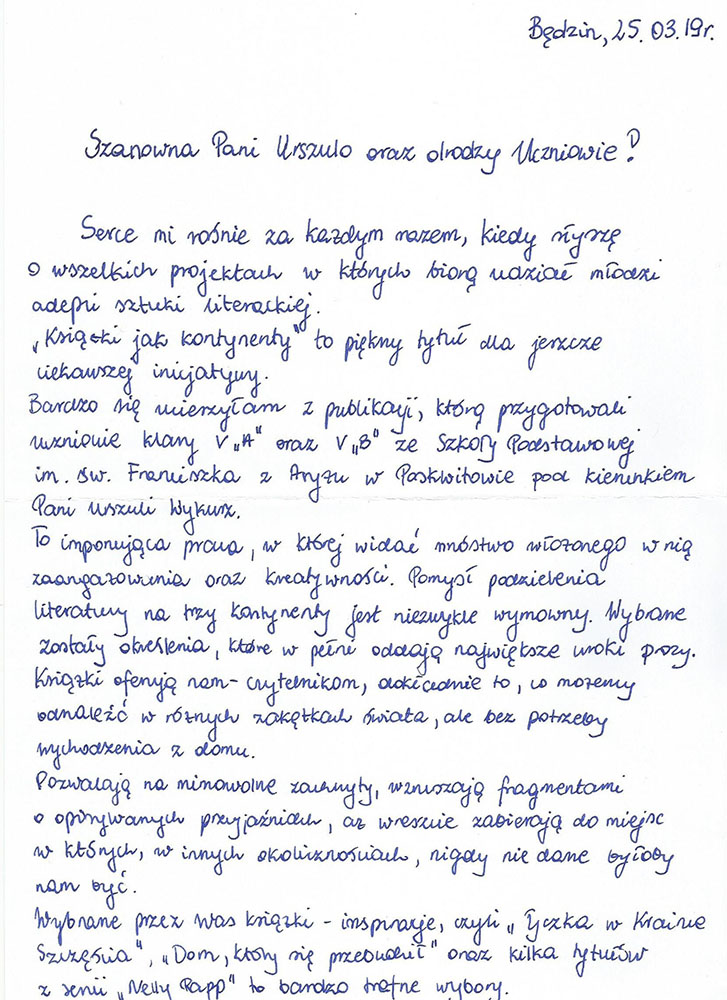 Będzin, 25.03.19r.
Szanowna Pani Urszulo oraz drodzy Uczniowie!
Serce mi rośnie za każdym razem, kiedy słyszę
o wszelkich projektach w których biorą udział młodzi
adepci sztuki literackiej.
„Książki jak kontynenty" to piękny tytuł dla jeszcze
ciekawszej inicjatywy.
Bardzo się ucieszyłam z publikacji, którą przygotowali
uczniowie klasy V „A" oraz V „B" ze Szkoły Podstawowej
im. św. Franciszka z Asyżu w Paskwitowie pod kierunkiem
Pani Urszuli Wykurz.
To imponująca praca, w której widać mnóstwo włożonego w nią
zaangażowania oraz kreatywności. Pomysł podzielenia
literatury na trzy kontynenty jest niezwykle wymowny. Wybrane
zostały określenia, które w pełni oddają największe uroki prozy.
Książki oferują nam - czytelnikom, dokładnie to, co możemy
odnaleźć w różnych zakątkach świata, ale bez potrzeby
wychodzenia z domu.
Pozwalają na mimowolne zachwyty, wzruszają fragmentami
o opisywanych przyjaźniach, aż wreszcie zabierają do miejsc
w których, w innych okolicznościach, nigdy nie dane byłoby
nam być.
Wybrane przez Was książki - inspiracje, czyli „Tyczka w Krainie
Szczęścia", „Dom, który się przebudził" oraz kilka tytułów
z serii „Nelly Rapp" to bardzo trafne wybory.